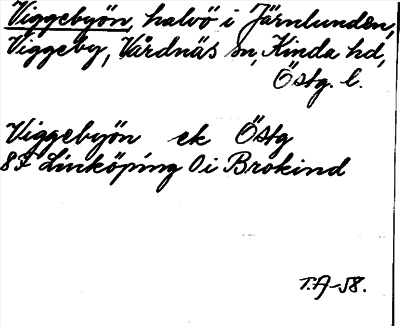 Viggebyön, halvö i Järnlunden,
Viggeby, Vårdnäs sn, Kinda hd,
Östg. l.
Viggebyön ek Östg
8F Linköping Öi Brokind
T.A-58.